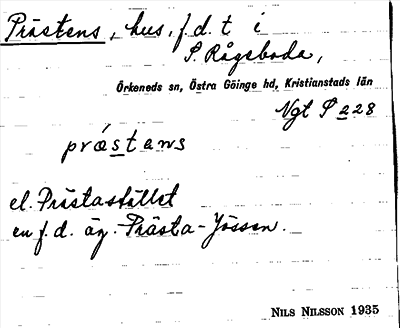 Prästens, hus, f.d. t i
S. Rågeboda,
Örkeneds sn, Östra Göinge hd, Kristianstads län
Vgt P 228
præstans
el. Prästastället
en f.d. äg. Prästa-Jössen.
NILS NILSSON 1935